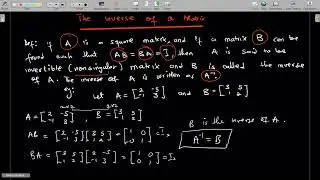 The inverse of a Matrix
Def: if A is a square matrix, and if a matrix B can be
found such that AB = BA = I, then A is said to be
invertible (nonsingular) matrix and B is called the inverse
of A. The inverse of A is written as A⁻¹.
eg: Let A = [2 -5; -1 3] and B = [3 5; 1 2]
A = [2 -5; -1 3] B = [3 5; 1 2]
AB = [2 -5; -1 3] [3 5; 1 2] = [1 0; 0 1] = I₂
B is the inverse of A.
BA = [3 5; 1 2] [2 -5; -1 3] = [1 0; 0 1] = I₂
A⁻¹ = B